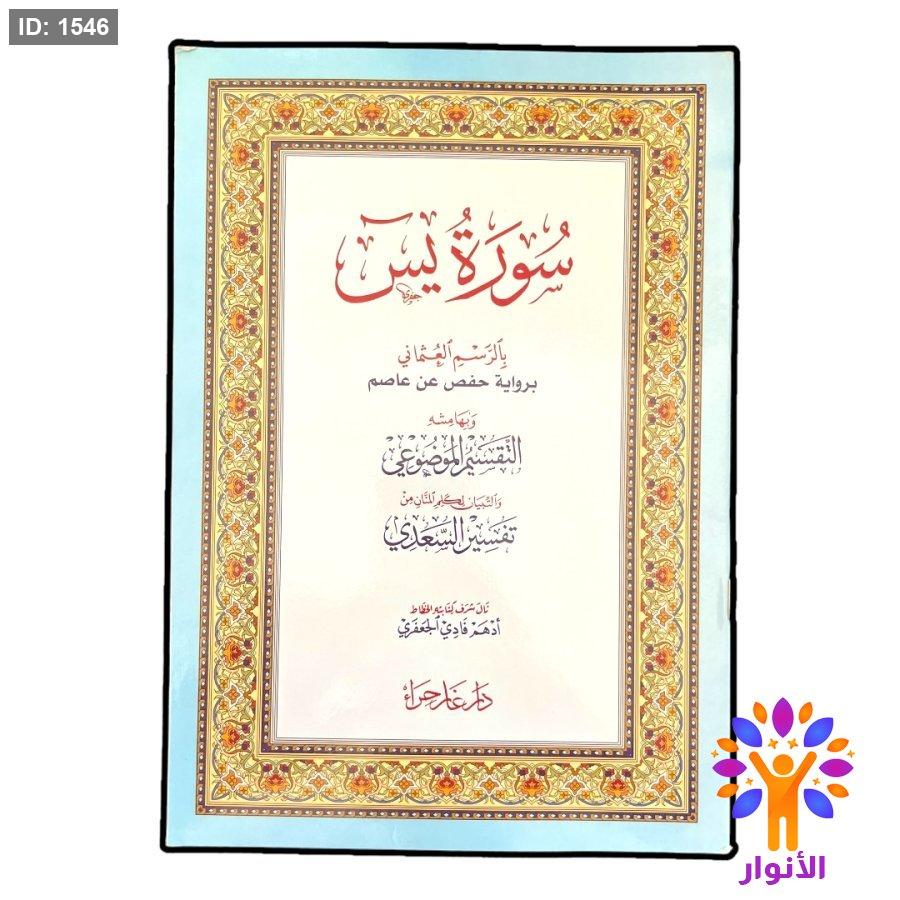 ID: 1546
سُورَةُ يسٓ
جفري
بِالرَّسْمِ العُثْمَانِي
برواية حفص عن عاصم
وَبِهَامِشِهِ
التَّقْسِيْمُ المَوْضُوْعِي
وَالتِّبْيَانُ لِكَلِمِ المَنَّانِ مِنْ
تَفْسِيْرِ السَّعْدِي
نَالَ شَرَفَ كِتَابَتِهِ الخَطَّاط
أدْهَمْ فَادِيْ الجَعْفَرِيْ
دَار غَار حِرَاء
الأنوار